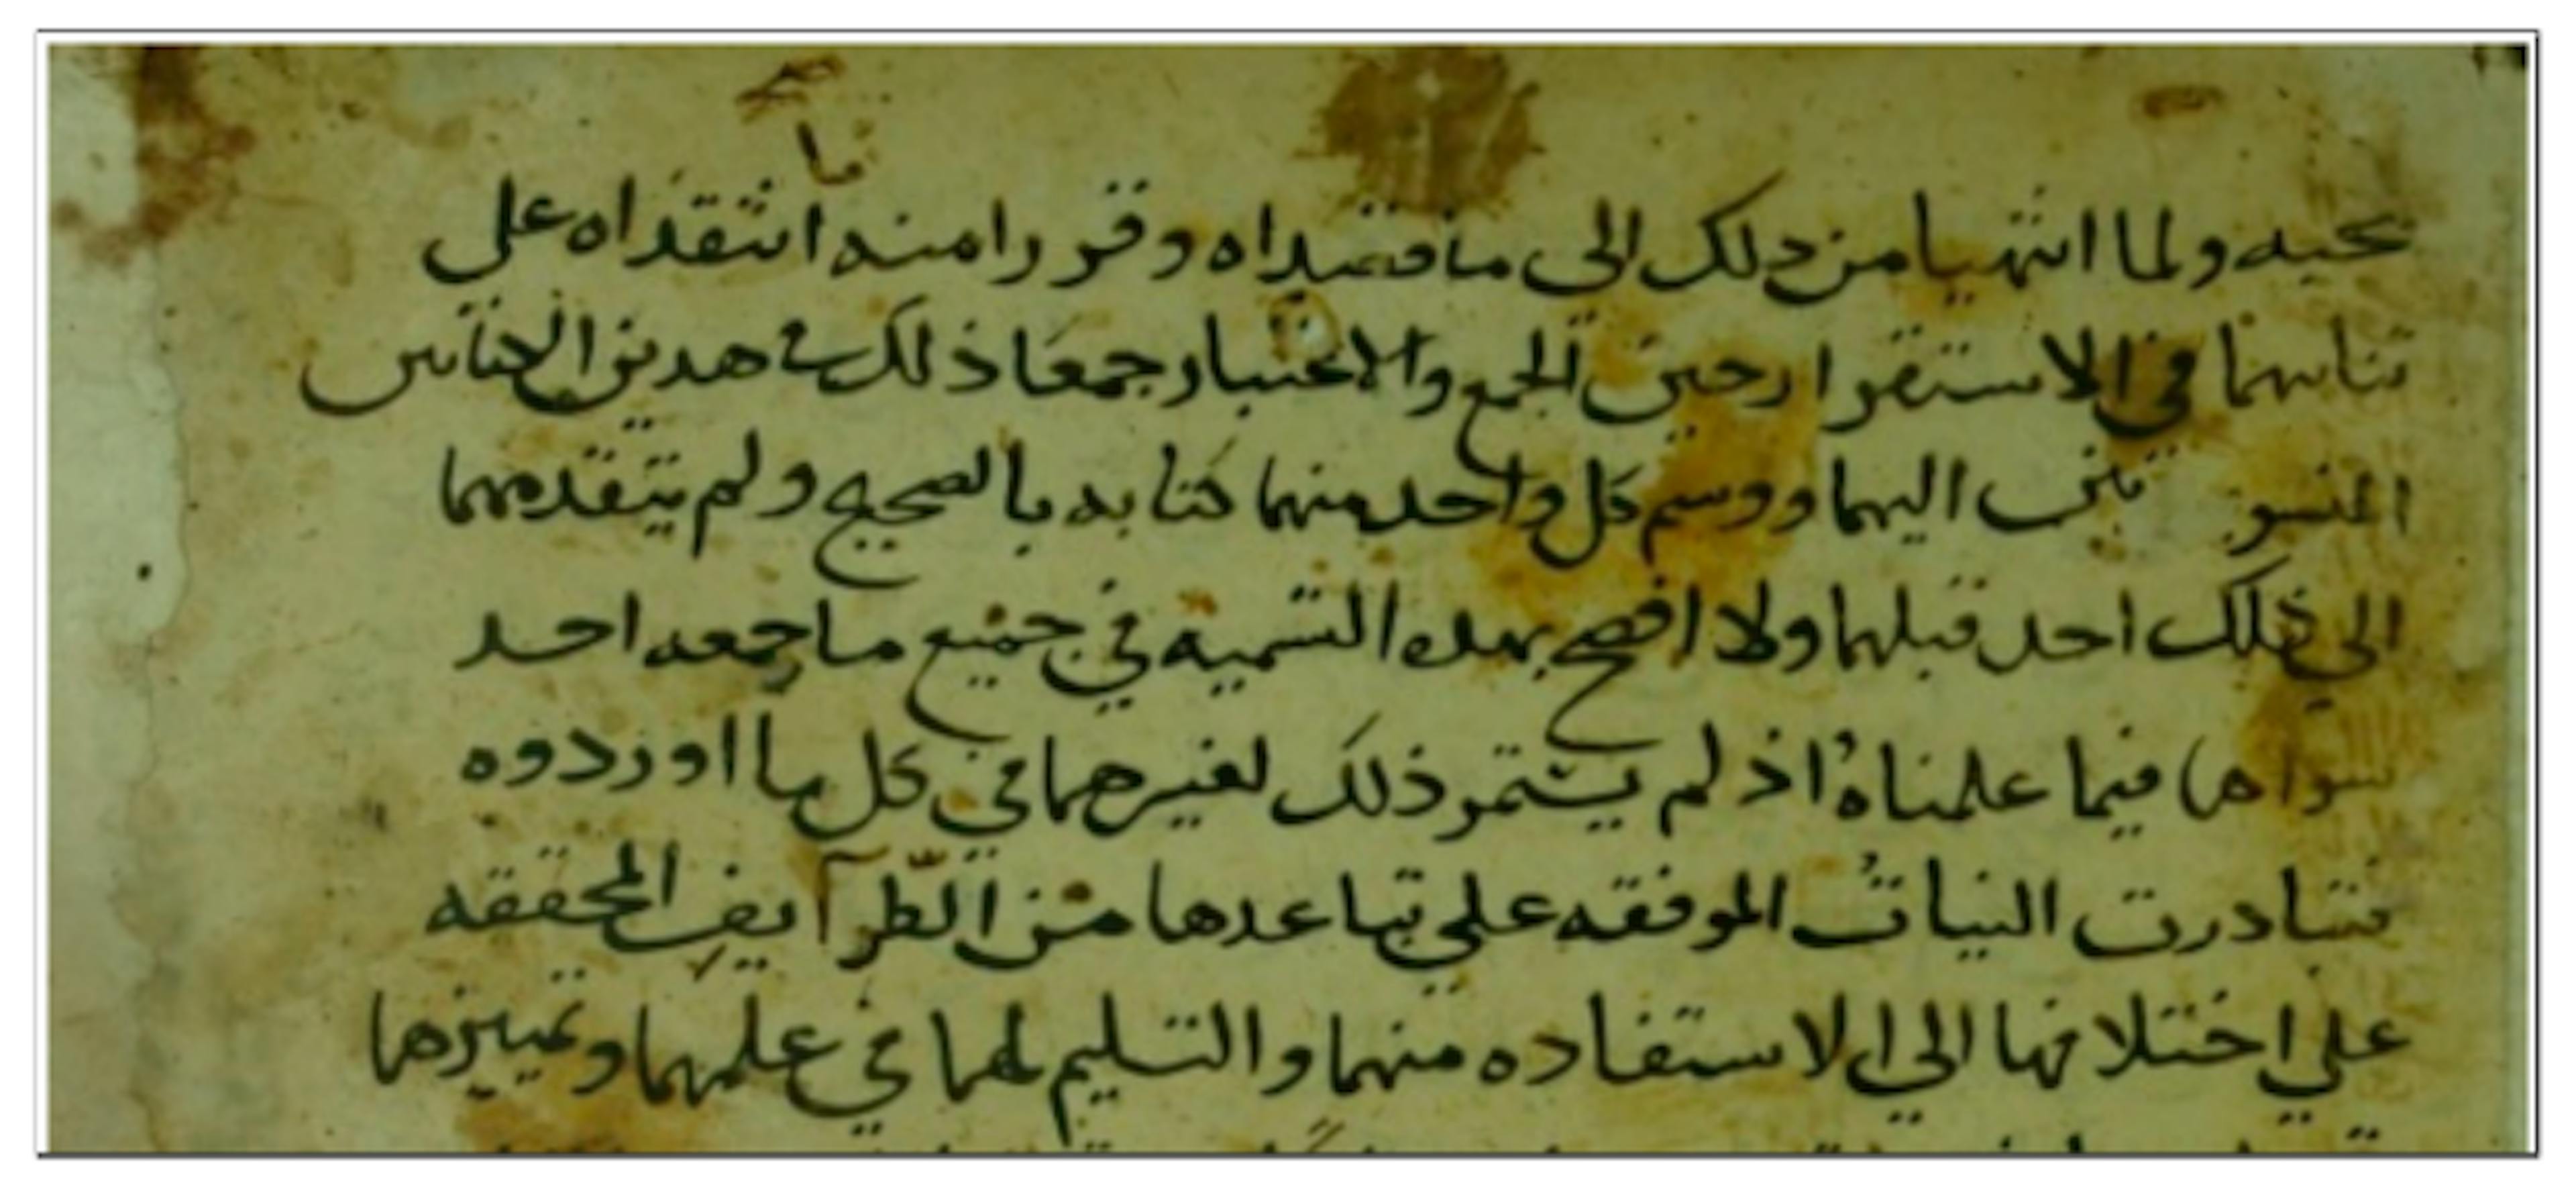 ما
نحبه ولما انتهيا من ذلك الى ما قصداه وقررا منه انتقداه على
تناسبهما في الاستقرار حين الجمع والاعتبار جمعا ذلك في هدين الكتابين
المنسوبتين اليهما ووسم كل واحد منهما كتابه بالصحيح ولم يتقدمهما
الى ذلك احد قبلهما ولا افصح بهده التسميه في جميع ما جمعه احد
سواهما فيما علمناهُ اذ لم يستمر ذلك لغيرهما في كل ما اوردوه
فتبادرت النياتُ الموفقه على تباعدها من الطرآيف المحققه
على اختلافها الى الاستفاده منهما والتسليم لهما في علمهما وتمييزهما